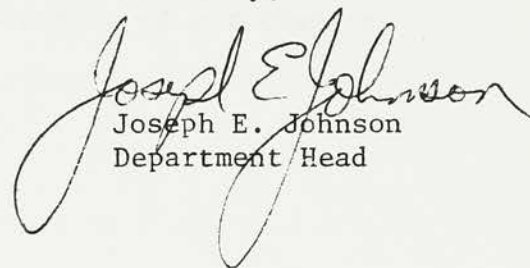 Joseph E Johnson
Joseph E. Johnson
Department Head